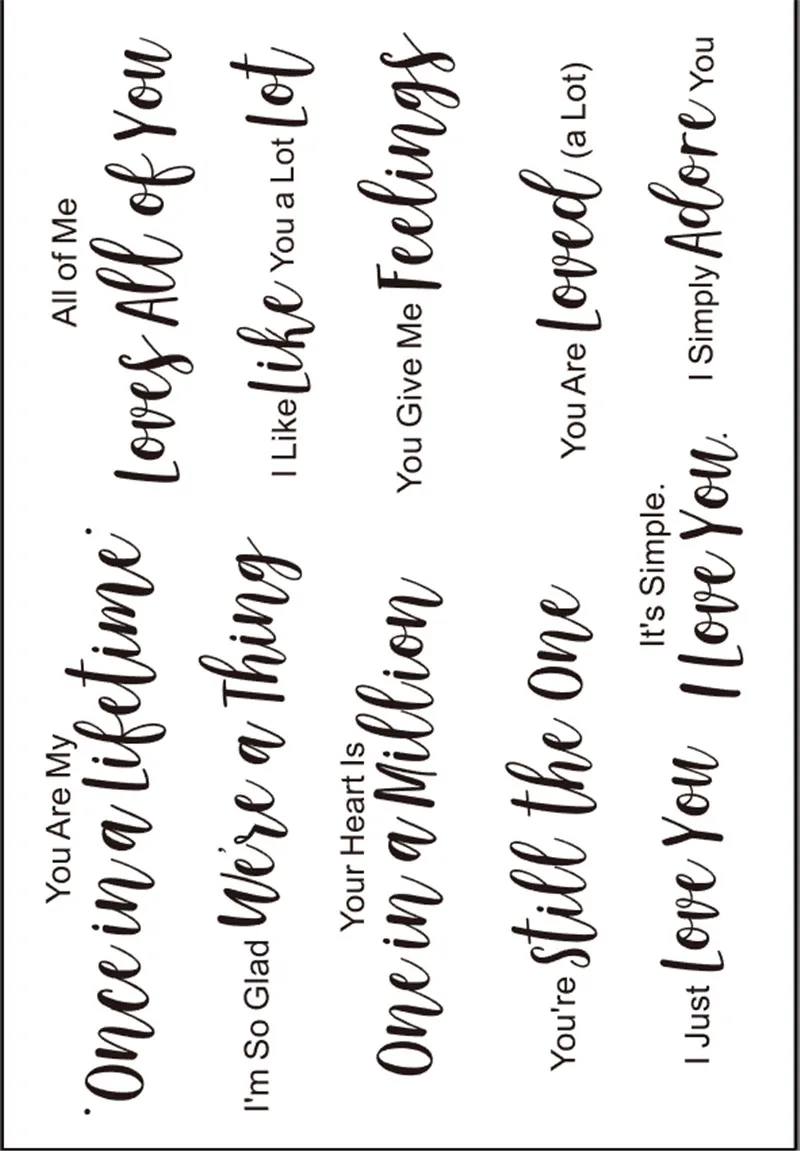 You Are My
'Once in a Lifetime'
All of Me
Loves All of You
I'm So Glad We're a Thing
I Like Like You a Lot Lot
Your Heart Is
One in a Million
You Give Me Feelings
You're Still the One
You Are Loved (a Lot)
It's Simple.
I Love You.
I Just Love You
I Simply Adore You